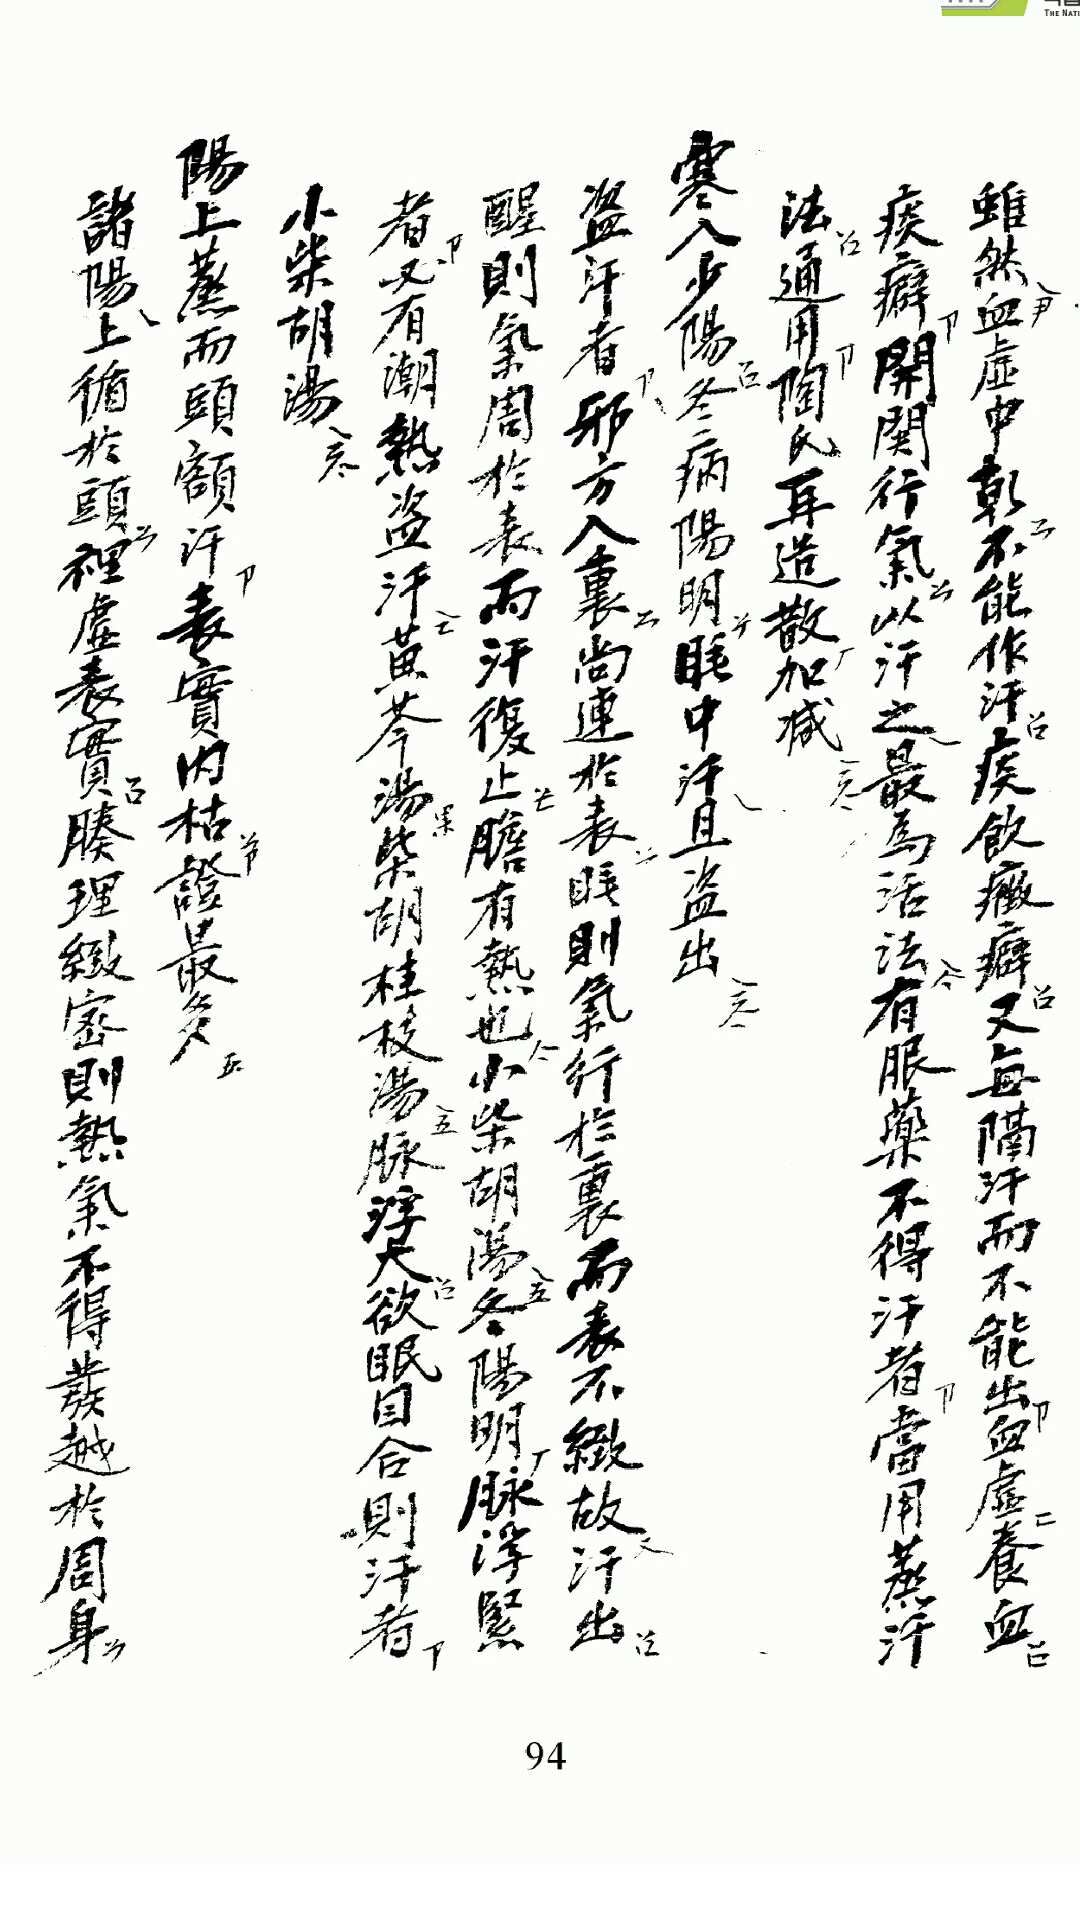 雖然血虛中氣不能作汗痰飮癥癖又每隔汗而不能出血虛養血
痰癖開関行氣以汗之最爲活法有服藥不得汗者當用蒸汗
法通用陶氏再造散加减
寒入少陽冬病陽明睡中汗且盗出
盗汗者邪方入裏尚連於表睡則氣行於裏而表不緻故汗出
醒則氣周於表而汗復止膽有熱也小柴胡湯冬陽明脉浮緊
者又有潮熱盗汗黃芩湯柴胡桂枝湯脉浮大欲眠目合則汗者
小柴胡湯
陽上蒸而頭額汗表實內枯證最多
諸陽上循於頭裡虛表實腠理緻密則熱氣不得發越於周身
94
THE NATI